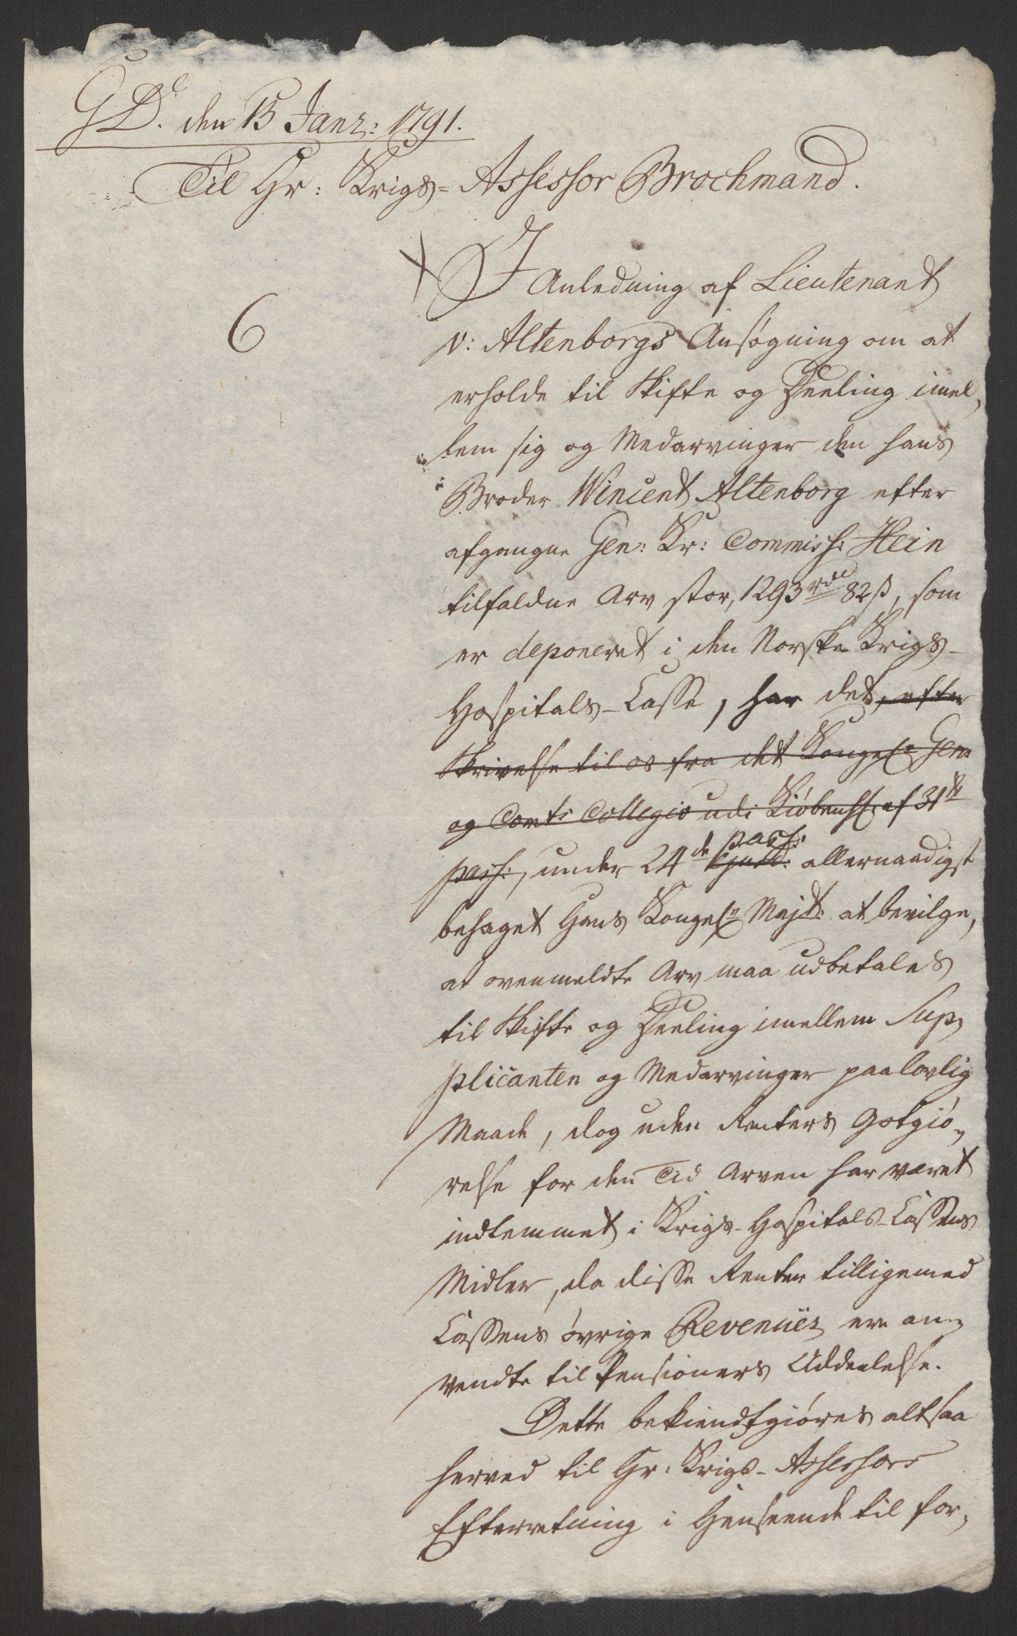 G D. den 15 Janr: 1791.
Til Hr: Krigs-Assessor Brochmand.
6
I Anledning af Lieutenant
v: Altenborgs Ansøgning om at
erholde til Skifte og Deeling imel,
lem sig og Medarvinger den hans
Broder Wincent Altenborg efter
afgangne Gen: Kr: Commiss: Hein
tilfaldne Arv stor, 1293 rdl 82 ß, som
er deponeret i den Norske Krigs-
Hospitals-Casse, har det, efter
Skrivelse til os fra det Kongel. Gen:
og Com: Collegio udi Kiøbenh: af 31te
pass:, under 24de pass: allernaadigst
behaget Hans Kongel: Majt: at bevilge,
at ovenmeldte Arv maa udbetales
til Skifte og Deeling imellem Sup,
plicanten og Medarvinger paa lovlig
Maade, dog uden Renters Gotgiø,
relse for den Tid Arven har været
indlemmet i Krigs-Hospitals-Cassens
Midler, da disse Renter tilligemed
Cassens øvrige Revenüer ere an,
vendte til Pensioners Uddeelelse.
Dette bekiendtgiøres altsaa
herved til Hr: Krigs-Assessors
Efterretning i Henseende til for,